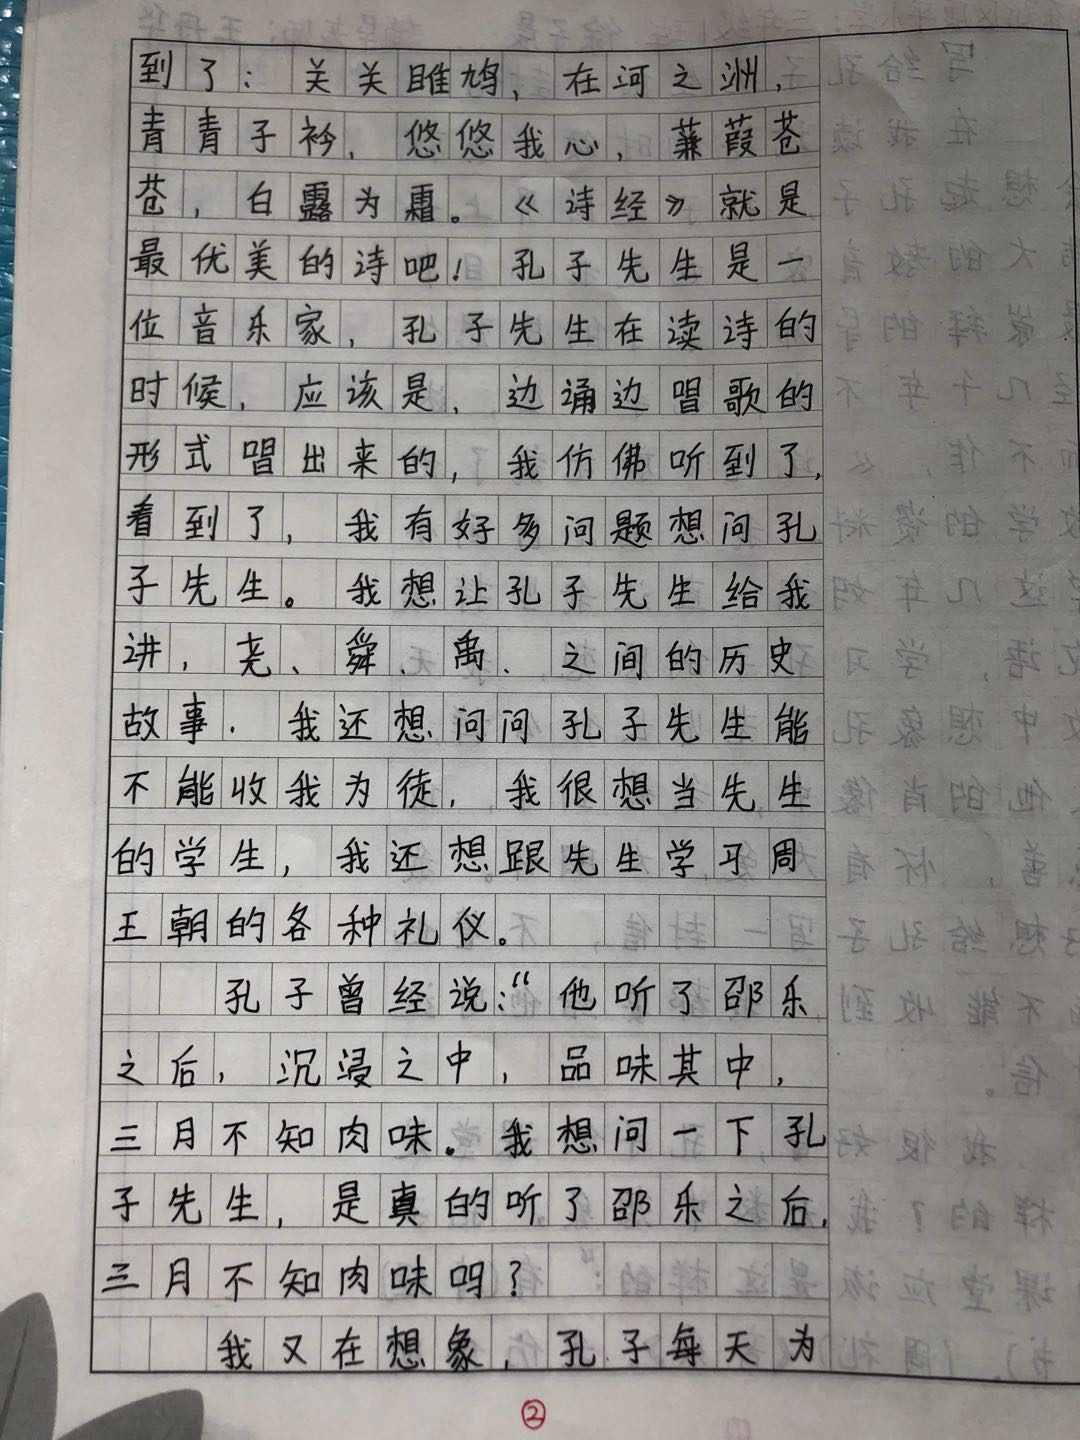 到了：关关雎鸠，在河之洲，
青青子衿，悠悠我心，蒹葭苍
苍，白露为霜。《诗经》就是
最优美的诗吧！孔子先生是一
位音乐家，孔子先生在读诗的
时候，应该是，边诵边唱歌的
形式唱出来的，我仿佛听到了，
看到了，我有好多问题想问孔
子先生。我想让孔子先生给我
讲，尧、舜、禹、之间的历史
故事．我还想问问孔子先生能
不能收我为徒，我很想当先生
的学生，我还想跟先生学习周
王朝的各种礼仪。
孔子曾经说：“他听了邵乐
之后，沉浸之中，品味其中，
三月不知肉味。我想问一下孔
子先生，是真的听了邵乐之后，
三月不知肉味吗？
我又在想象，孔子每天为
②